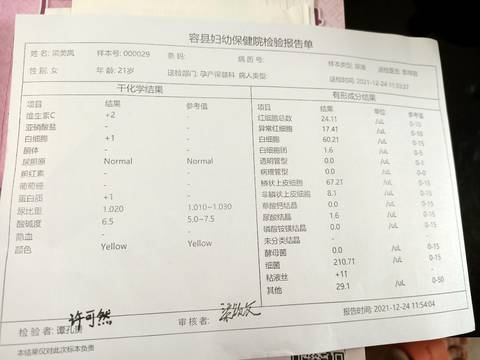 容县妇幼保健院检验报告单
样本号: 000029 条码: 病历号: 样本类型: 尿液
性别: 女 年龄: 21岁 送检部门: 孕产保健科 病人类型: 送检时间: 2021-12-24 11:33:27
干化学结果 有形成分结果
项目 结果 参考值 项目 结果 单位 参考值
维生素C +2 红细胞总数 24.11 /uL 0-10
亚硝酸盐 - - 异常红细胞 17.41 /uL 0-10
白细胞 +1 - 白细胞 60.21 /uL 0-15
酮体 - - 白细胞团 1.6 /uL 0-5
尿胆原 Normal Normal 透明管型 0.0 /uL 0-1
胆红素 - - 病理管型 0.0 /uL
葡萄糖 - - 鳞状上皮细胞 67.21 /uL
蛋白质 +1 - 非鳞状上皮细胞 8.1 /uL
尿比重 1.020 1.010~1.030 草酸钙结晶 0.0 /uL 0-15
酸碱度 6.5 5.0~7.5 尿酸结晶 1.6 /uL 0-15
隐血 - - 磷酸铵镁结晶 0.0 /uL 0-15
颜色 Yellow Yellow 未分类结晶
酵母菌 0.0 /uL 0-15
细菌 210.71 /uL
粘液丝 +1↑
其他 29.1 /uL 0-50
检验者: 许可然 审核者: 报告时间: 2021-12-24 11:54:04
本结果仅对此次标本负责